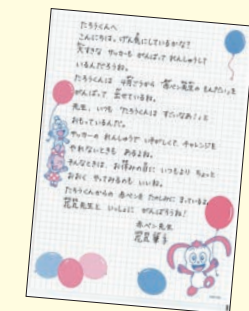 たろうくんへ
こんにちは。げん気にしているかな?
大すきな サッカーも がんばって れんしゅうして
いるんだろうね。
たろうくんは 4月ごうから 赤ペン先生の もんだいを
がんばって 出せているね。
先生、いつも「たろうくんは すごいなあ!」と
おもっているんだ。
サッカーの れんしゅうで いそがしくて、チャレンジを
やれないときも あるよね。
そんなときは、お休みの日に いつもより ちょっと
おおく やってみるのも いいね。
たろうくんからの 赤ペンを たのしみに まっているよ。
花丸先生と いっしょに がんばろうね!
赤ペン先生
花丸